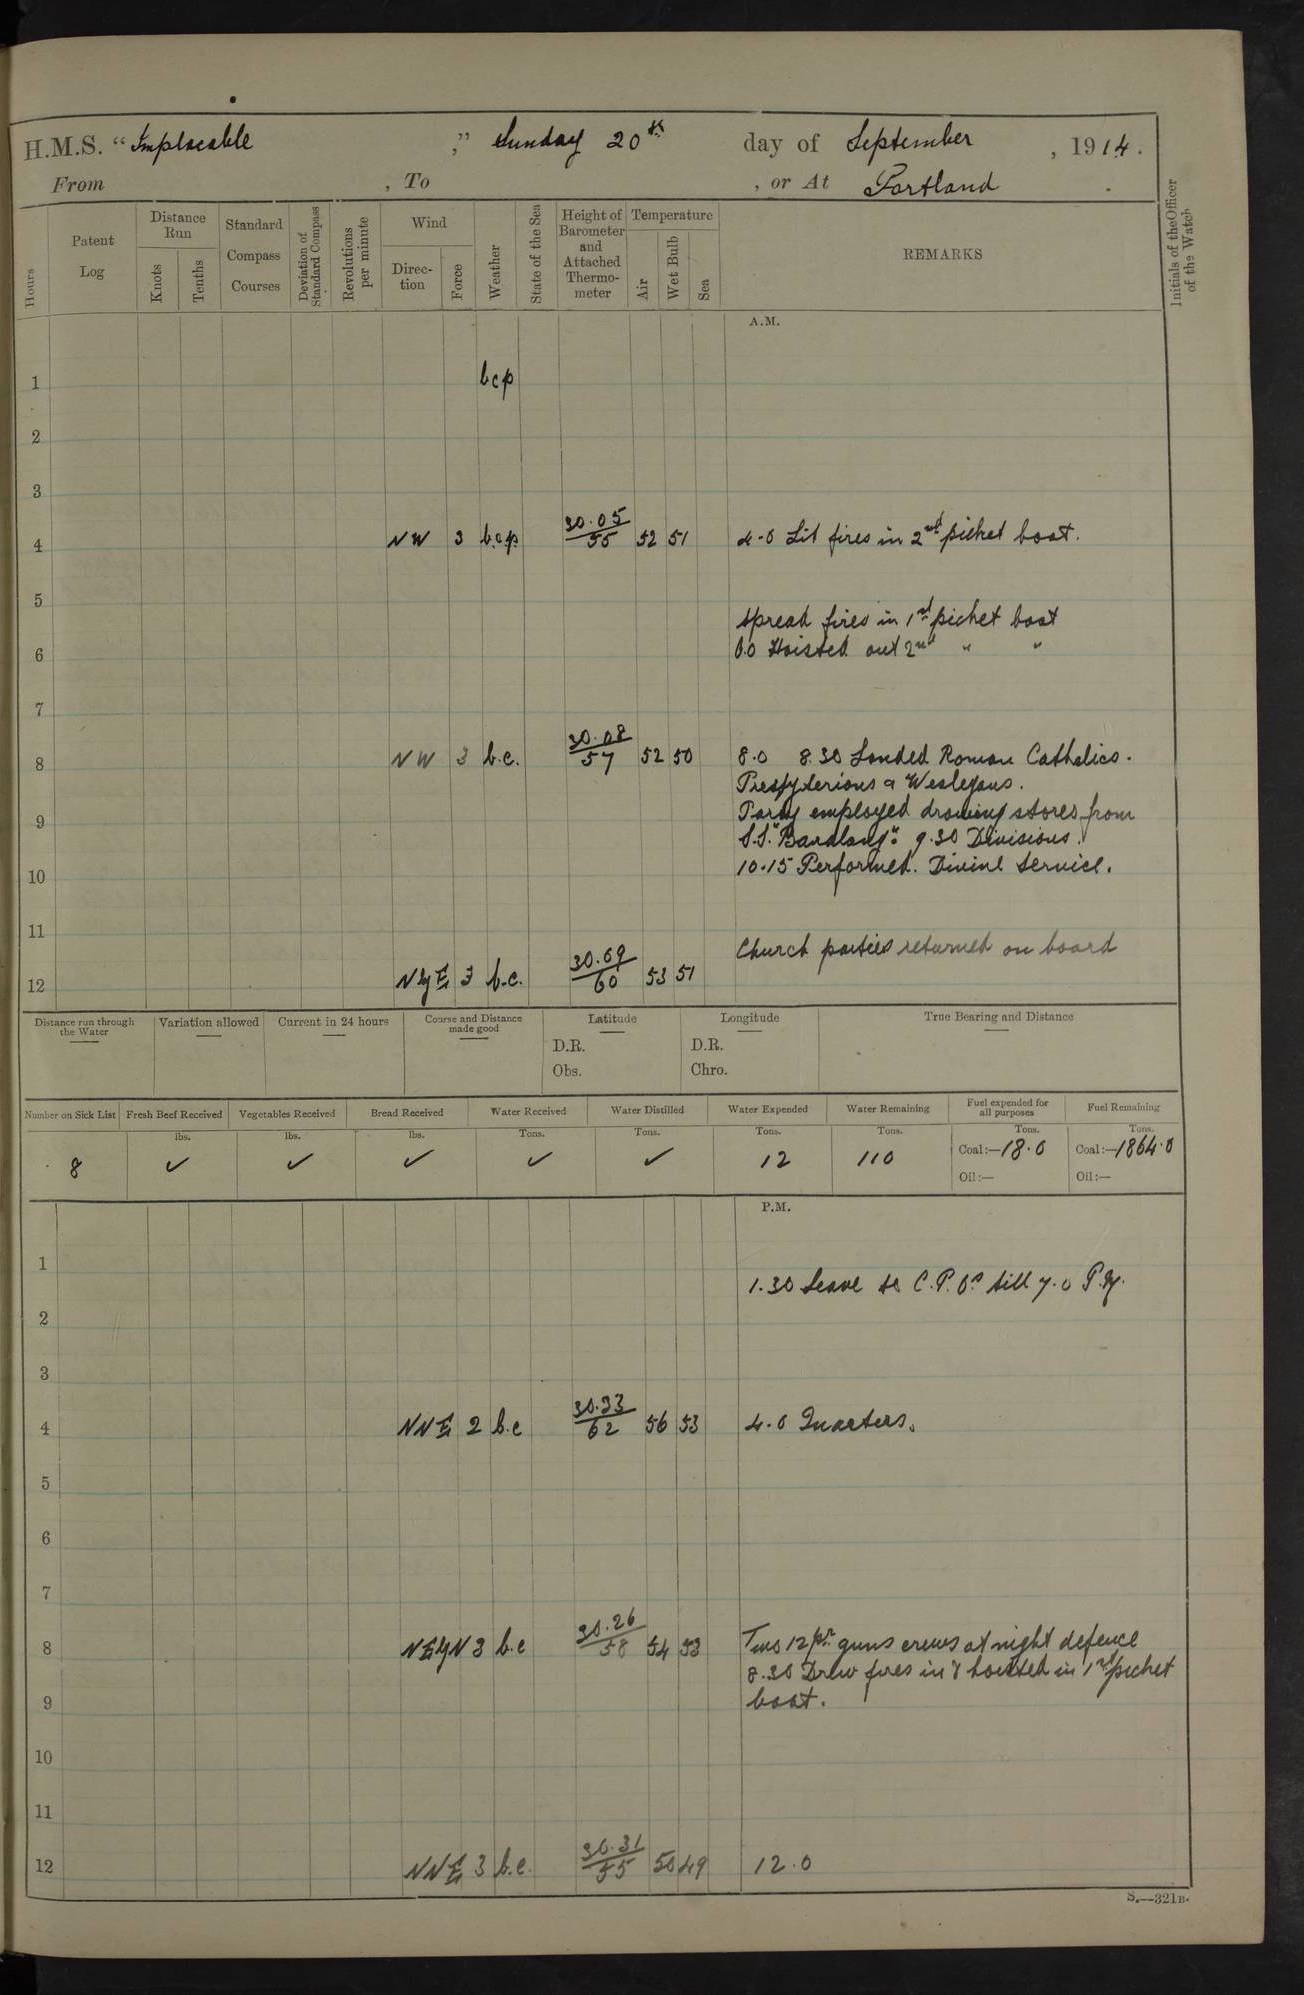 H.M.S. "Implacable," Sunday 20th day of September, 1914.
From , To , or At Portland
Hours
Patent Log
Distance Run
Knots
Tenths
Standard Compass Courses
Deviation of Standard Compass
Revolutions per minute
Wind
Direc-tion
Force
Weather
State of the Sea
Height of Barometer and Attached Thermo-meter
Temperature
Air
Wet Bulb
Sea
REMARKS
Initials of the Officer of the Watch
A.M.
1 bcp
2
3
4 NW 3 b.c.p. 30.05/55 52 51 4-0 Lit fires in 2nd picket boat.
5
Spread fires in 1st picket boat
6 6.0 Hoisted out 2nd " "
7
8 NW 3 b.c. 30.08/57 52 50 8.0 8.30 Landed Roman Catholics.
Presbyterians & Wesleyans.
9 Party employed drawing stores from
S.S. "Baralong". 9.30 Divisions.
10 10.15 Performed. Divine Service.
11
Church parties returned on board
12 N by E 3 b.c. 30.09/60 53 51
Distance run through the Water
Variation allowed
Current in 24 hours
Course and Distance made good
Latitude
D.R.
Obs.
Longitude
D.R.
Chro.
True Bearing and Distance
Number on Sick List
Fresh Beef Received
Vegetables Received
Bread Received
Water Received
Water Distilled
Water Expended
Water Remaining
Fuel expended for all purposes
Fuel Remaining
lbs. lbs. lbs. Tons. Tons. Tons. Tons. Tons. Tons.
8 ✓ ✓ ✓ ✓ ✓ 12 110 Coal:—18.0 Coal:—1864.0
Oil:— Oil:—
P.M.
1
1.30 Leave to C.P.Os till 7.0 P.M.
2
3
4 NNE 2 b.c 30.23/62 56 53 4.0 Quarters.
5
6
7
8 NE by N 3 b.c 30.26/58 54 53 Two 12 pr guns crews at night defence
8.30 Drew fires in & hoisted in 1st picket
9 boat.
10
11
12 NNE 3 b.c. 30.31/55 50 49 12.0
S.—321B.